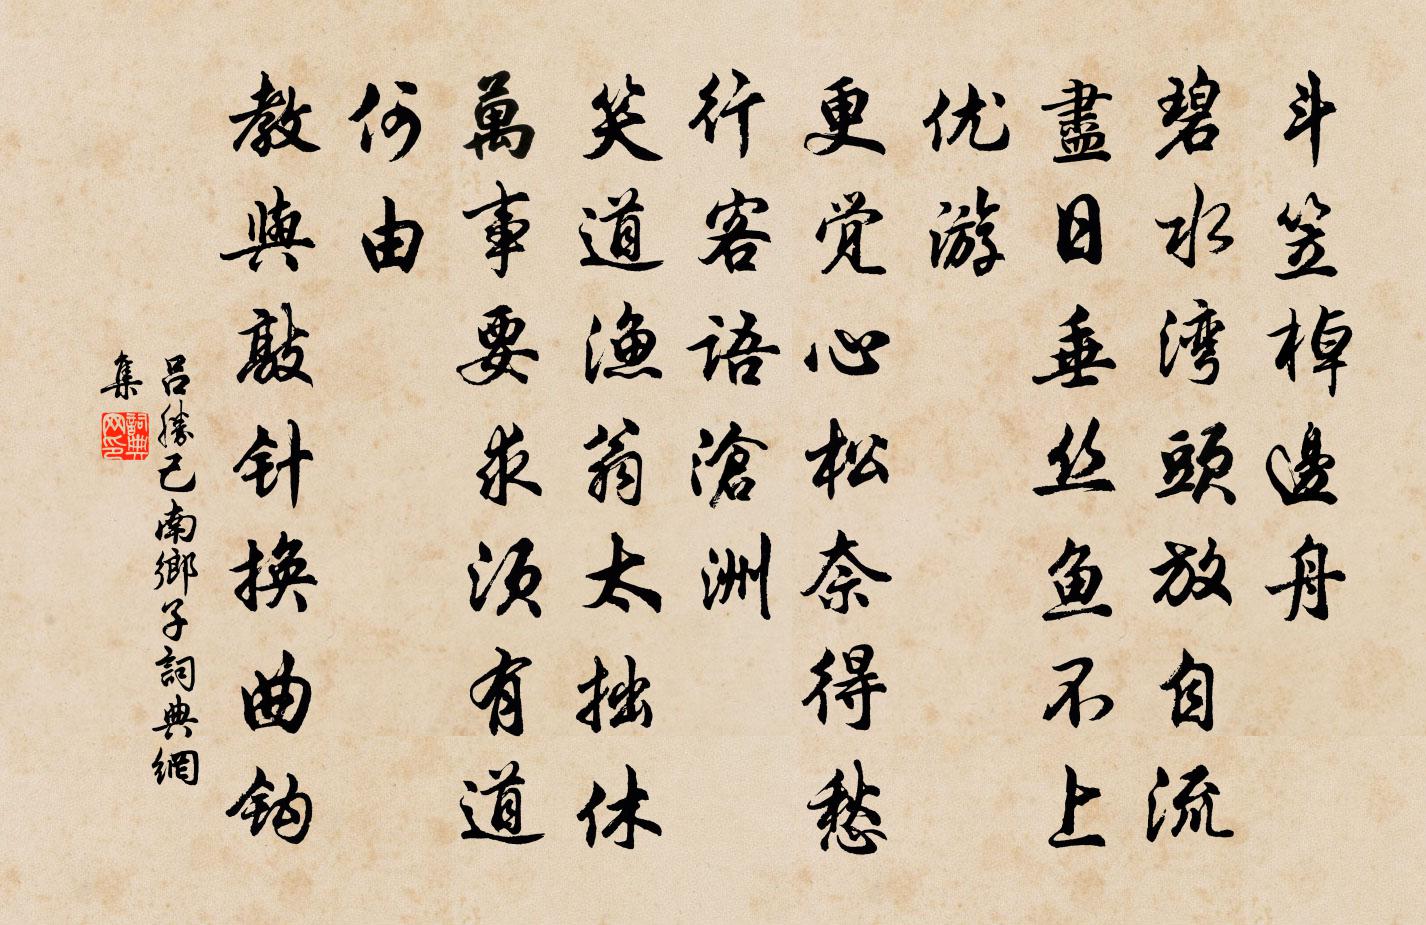 斗笠棹邊舟
碧水湾頭放自流
盡日垂丝鱼不上
优游
更觉心松奈得愁
行客語滄洲
笑道漁翁太拙休
萬事要求须有道
何由
教與敲针换曲钩
吕勝己南鄉子詞典網
集
詞典
网印